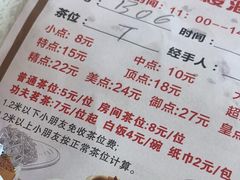 时间: 11:00-14
1306
时间:
茶位: T
经手人:
小点: 8元 中点: 10元
特点: 15元 顶点: 18元
精点: 22元 美点: 24元 御点: 27元
普通茶位: 5元/位 房间茶位: 8元/位
功夫茗茶: 7元/位起 白饭4元/碗 纸巾2元/包
1.2米以下小朋友免收茶位费.
1.2米以上小朋友按正常茶位计算。